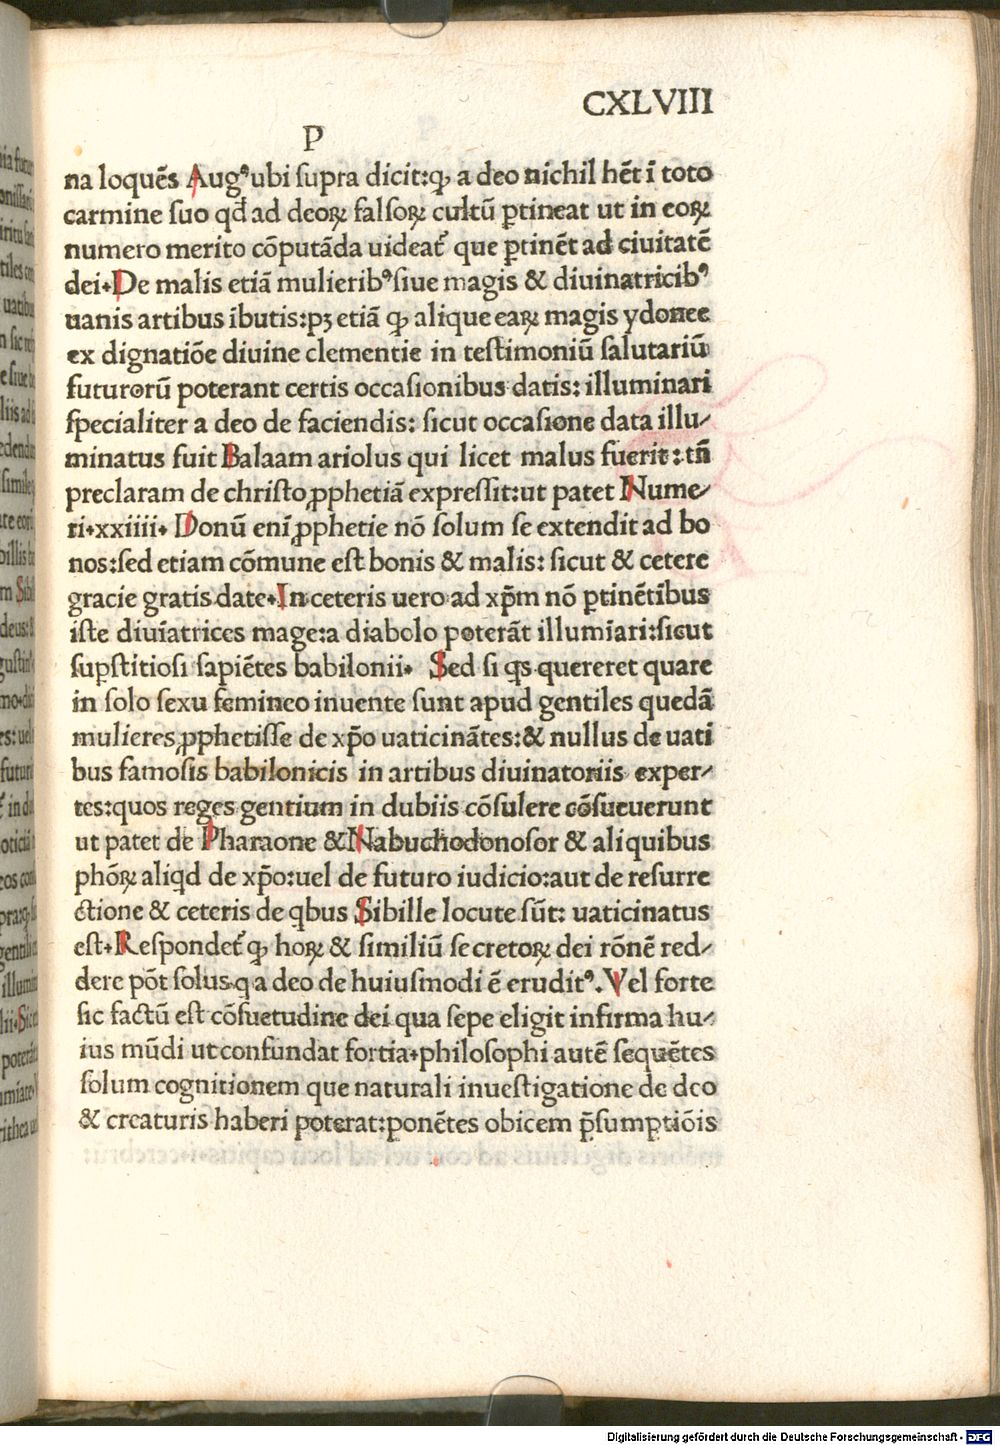 CXLVIII
P
na loquēs Augꝰ ubi ſupra dicit:ꝙ a deo nichil hēt ī toto
carmine ſuo qđ ad deoꝝ falſoꝝ cultū ꝑtineat ut in eoꝝ
numero merito cōputāda uideat᷑ que ꝑtinēt ad ciuitatē
dei·De malis etiā mulieribꝰ ſiue magis & diuinatricibꝰ
uanis artibus ibutis:pꝫ etiā ꝙ alique eaꝝ magis ydonee
ex dignatiōe diuine clementie in teſtimoniū ſalutariū
futurorū poterant certis occaſionibus datis: illuminari
ſpecialiter a deo de faciendis: ſicut occaſione data illu⸗
minatus fuit Balaam ariolus qui licet malus fuerit:tn̄
preclaram de chriſto ꝓphetiā expreſſit:ut patet Nume⸗
ri·xxiiii· Donū enī ꝓphetie nō ſolum ſe extendit ad bo
nos:ſed etiam cōmune eſt bonis & malis: ſicut & cetere
gracie gratis date·In ceteris uero ad xp̄m nō ꝑtinētibus
iſte diuīatrices mage:a diabolo poterāt illumīari:ſicut
ſupſtitioſi ſapiētes babilonii· Sed ſi qs quereret quare
in ſolo ſexu femineo inuente ſunt apud gentiles quedā
mulieres ꝓphetiſſe de xp̄o uaticinātes:& nullus de uati
bus famoſis babilonicis in artibus diuinatoriis exper⸗
tes:quos reges gentium in dubiis cōſulere cōſueuerunt
ut patet de Pharaone & Nabuchodonoſor & aliquibus
phōꝝ aliqd de xp̄o:uel de futuro iudicio:aut de reſurre
ctione & ceteris de qbus Sibille locute ſūt: uaticinatus
eſt·Reſpondet᷑ ꝙ hoꝝ & ſimiliū ſecretoꝝ dei rōnē red⸗
dere pōt ſolus q a deo de huiuſmodi ē eruditꝰ. Vel forte
ſic factū eſt cōſuetudine dei qua ſepe eligit infirma hu⸗
ius mūdi ut confundat fortia·philoſophi autē ſequētes
ſolum cognitionem que naturali inueſtigatione de deo
& creaturis haberi poterat:ponētes obicem p̄ſumptiōis
Digitalisierung gefördert durch die Deutsche Forschungsgemeinschaft - DFG